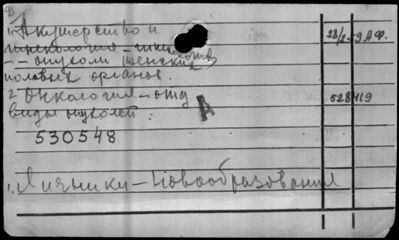 1. Акушерство и 28/2-59 А.Ф.
гинекология
-- опухоли женских
половых органов.
2. Онкология – отд. 528419
виды опухолей:
А
530548
1. Яичники – Новообразования